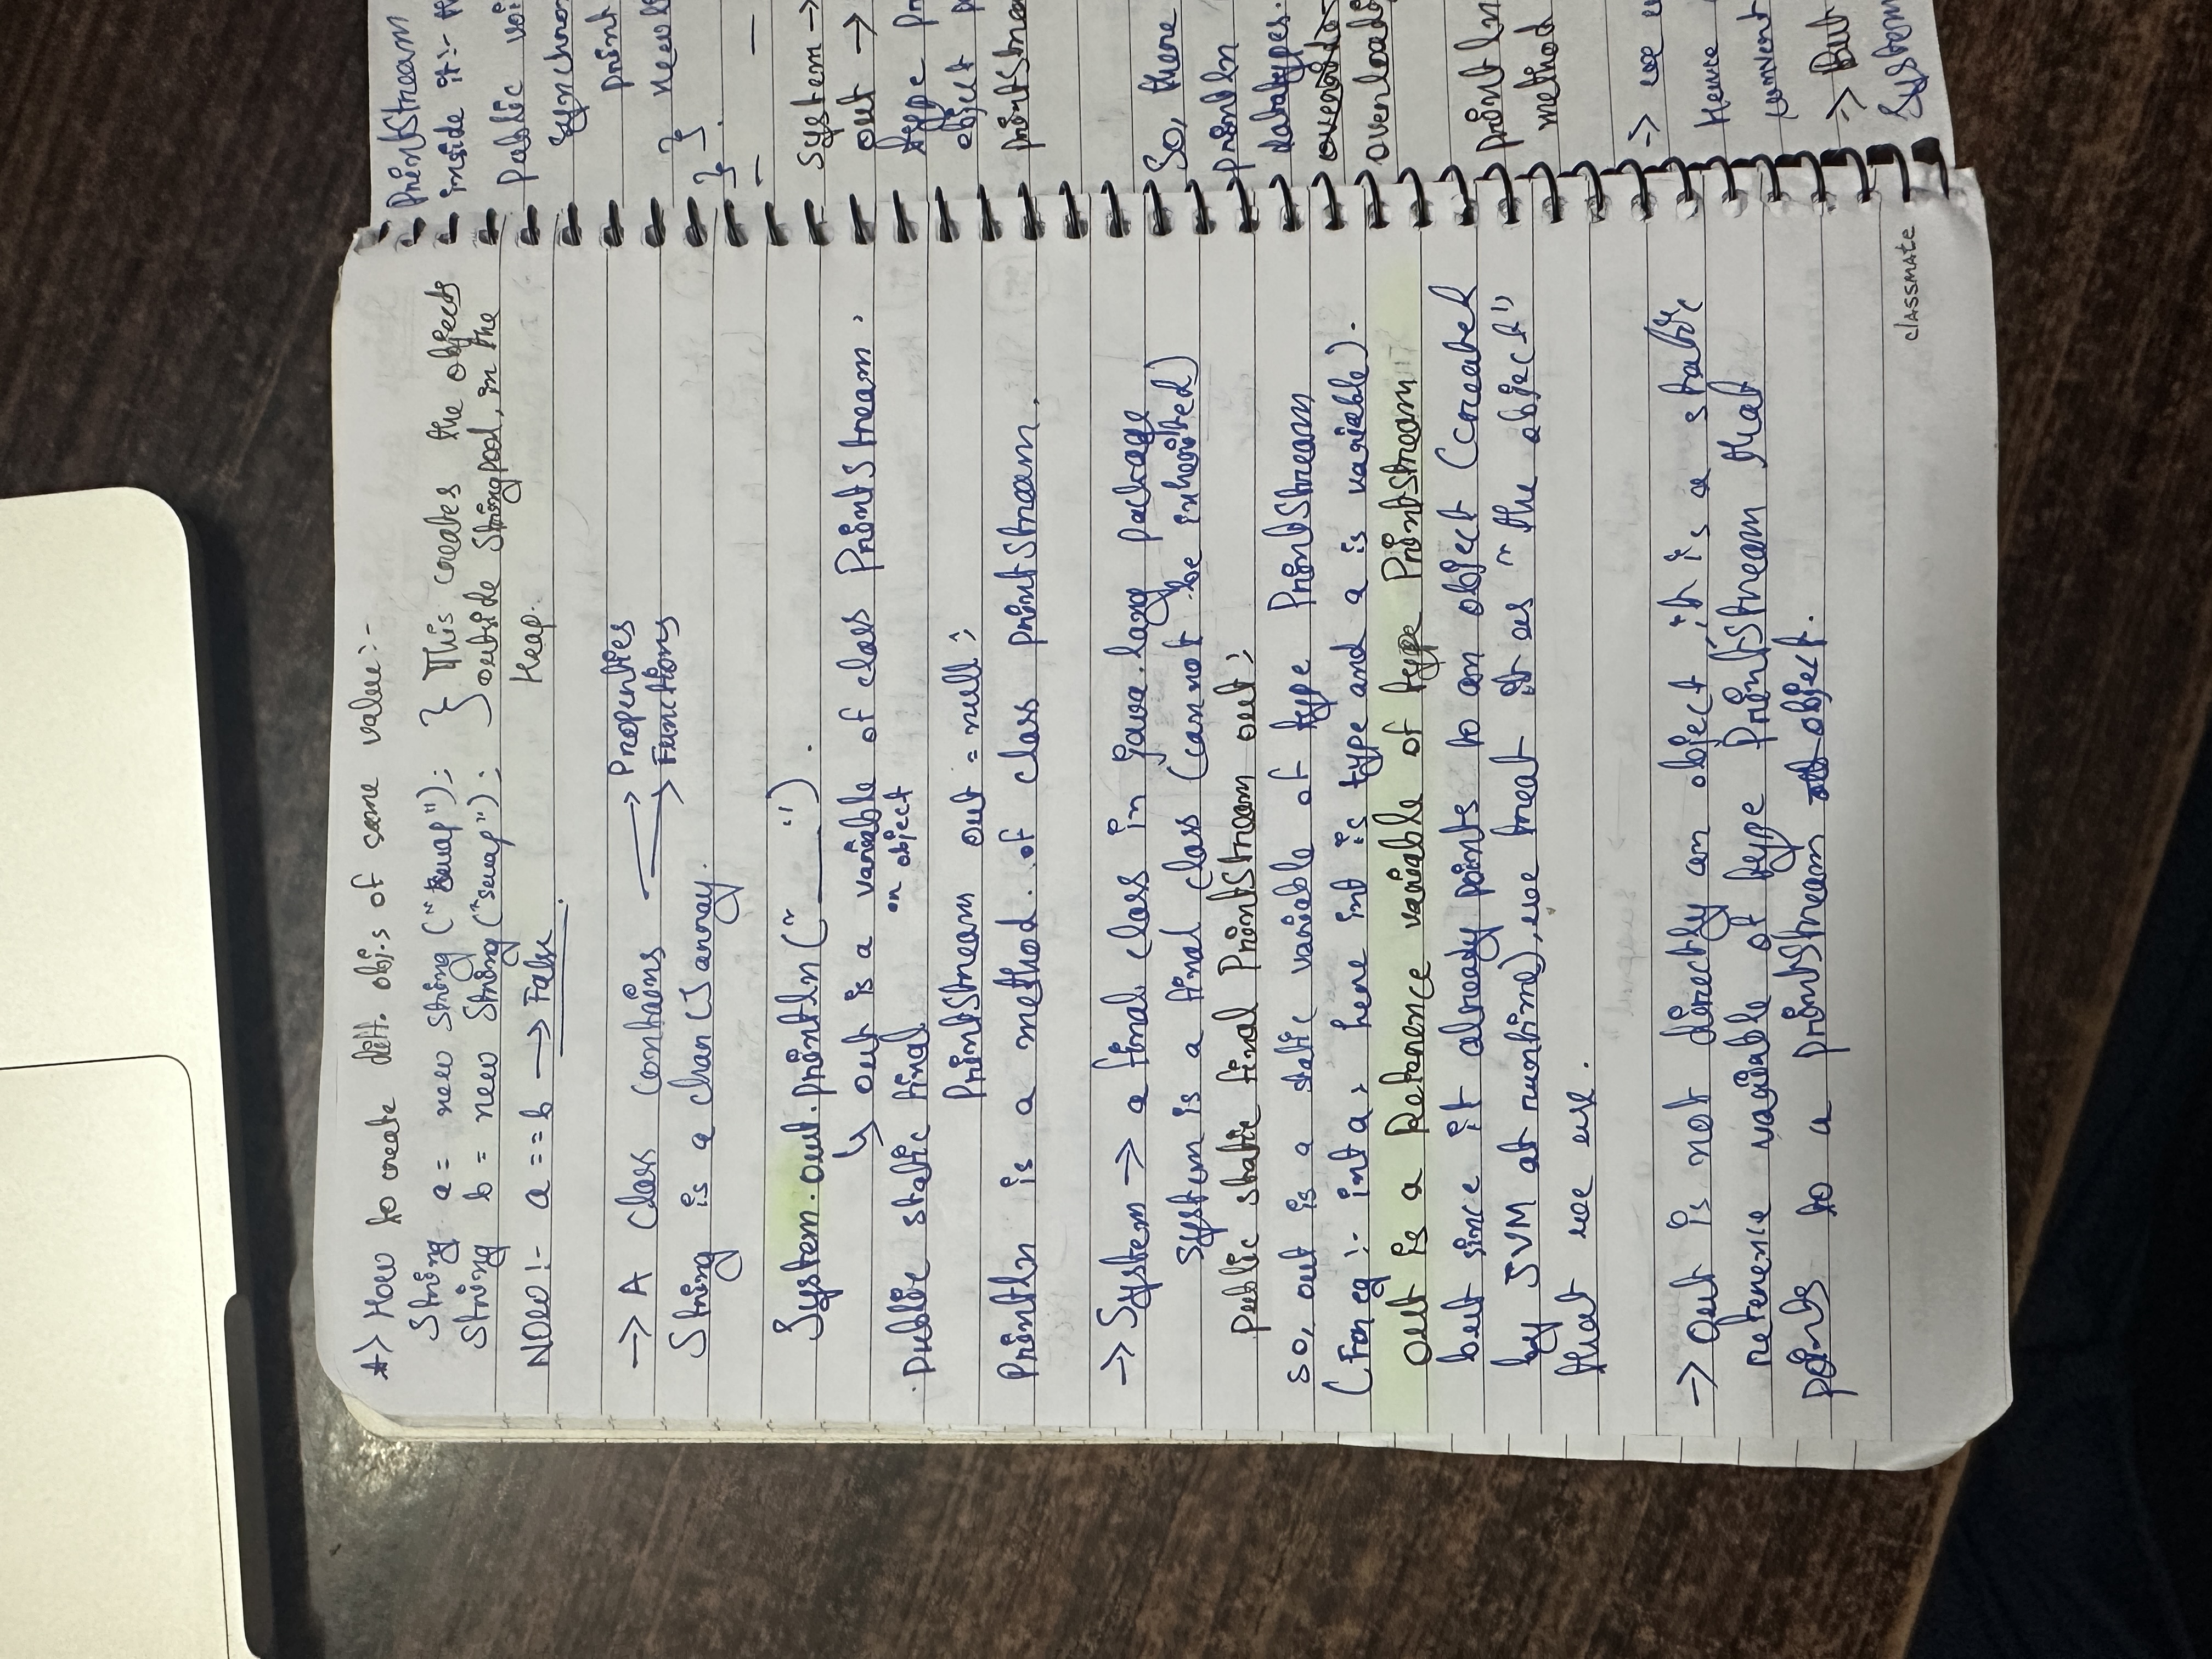 *> How to create diff. obj.s of same value:-
String a = new String ("swap");
String b = new String ("swap");
} This creates the objects
outside Stringpool, in the
Heap.
NOW :- a == b → False.
→ A class contains → Properties
→ Functions
String is a char [] array.
System.out.println ("___").
↳ out is a variable of class PrintStream.
or object
public static final
PrintStream out = null;
Println is a method. of class printStream.
→ System → a final class in java.lang package
System is a final class (cannot be inherited)
public static final PrintStream out;
so, out is a static variable of type PrintStream
(For eg :- int a; here int is type and a is variable).
out is a Reference variable of type PrintStream
but since it already points to an object (created
by JVM at runtime), we treat it as "the object"
that we use.
→ out is not directly an object, it is a static
reference variable of type PrintStream that
points to a printStream object.
classmate
PrintStream
inside it :-
Public
print
}
}.
System →
out →
type
object
So, there
println
datatypes.
println
method
→ we
Hence
convert
→ But
System